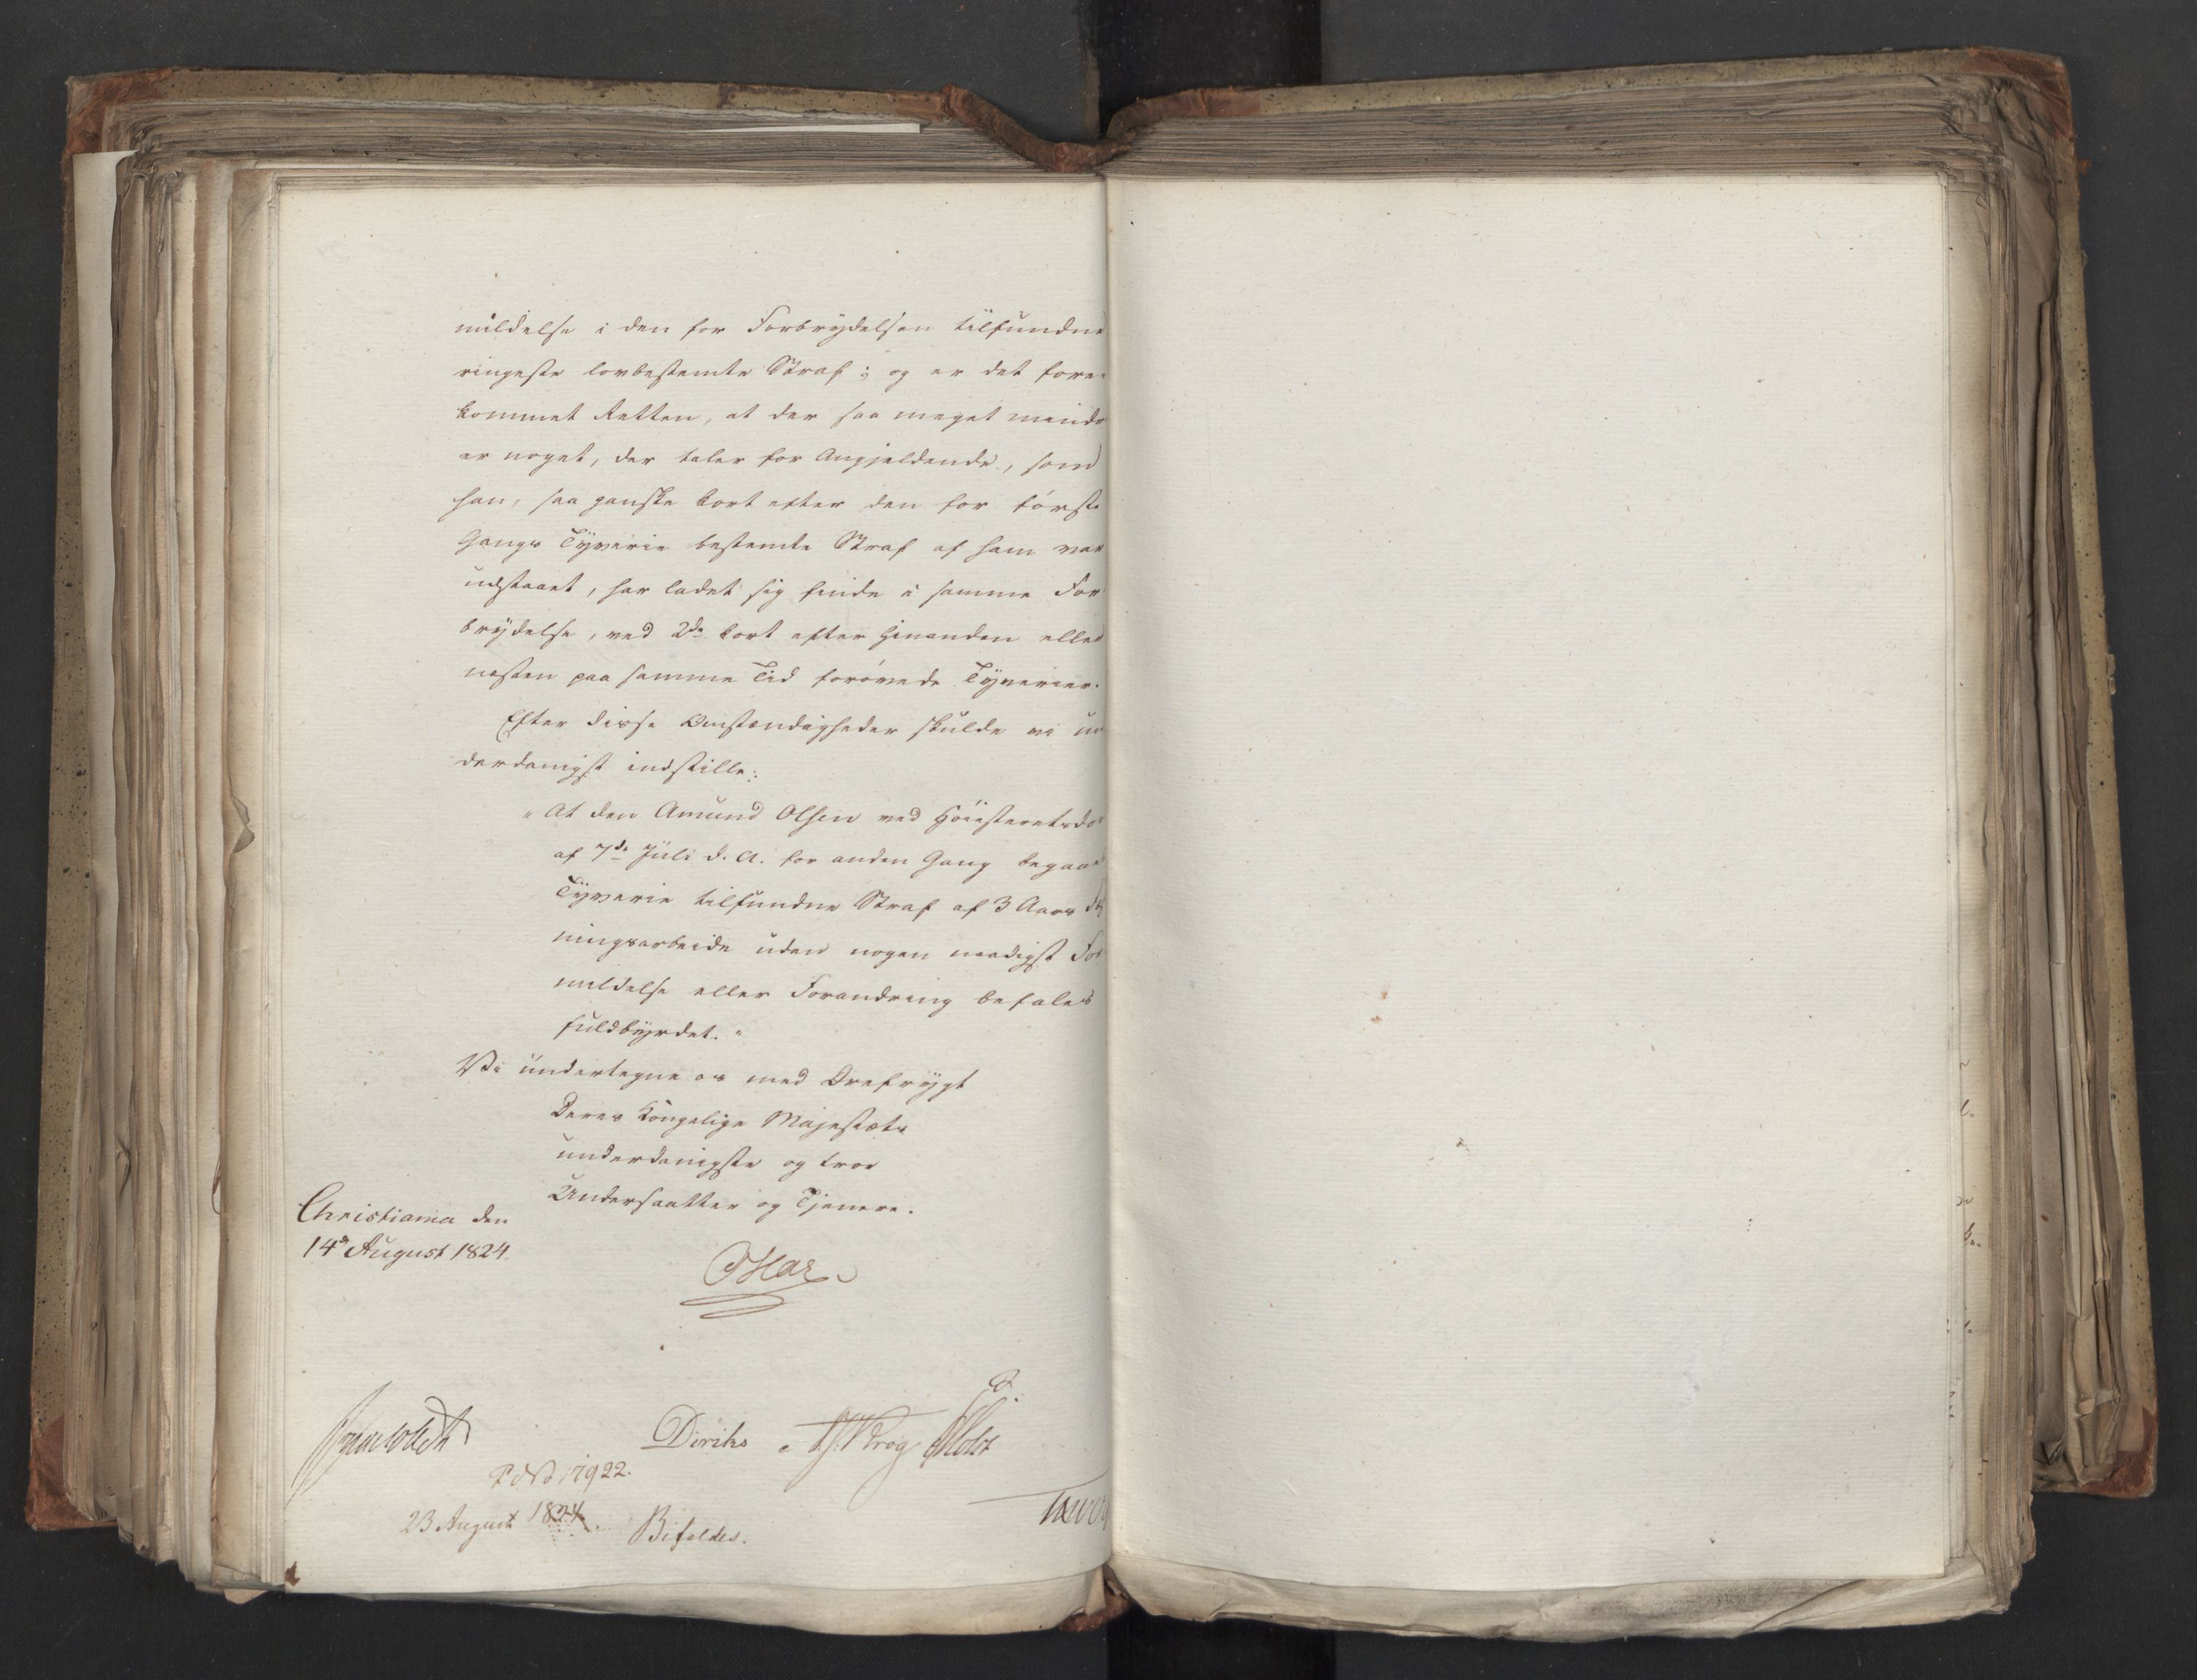 mildelse i den for Forbrydelsen tilfundne
ringeste lovbestemte Straf; og er det fore-
kommet Retten, at der saa meget mindre
er noget, der taler for Angjeldende, som
han, saa ganske kort efter den for første
Gangs Tyverie bestemte Straf af ham var
udstaaet, har ladet sig finde i samme For
brydelse, ved 2de kort efter hinanden eller
næsten paa samme Tid forøvede Tyverier.
Efter disse Omstændigheder skulde vi un
derdanigst indstille:
"At den Amund Olsen ved Høiesteretsdo
af 7de Juli d. A. for anden Gang begaaet
Tyverie tilfundne Straf af 3 Aars
ningsarbeide uden nogen naadigst For
mildelse eller Forandring befales
fuldbyrdet."
Vi undertegne os med Ærefrygt
Deres Kongelige Majestæts
underdanigste og troe
Undersaatter og Tjenere.
Christiania den
14de August 1824.
Diriks Krog Holst
23 August 1824. Bifaldes.